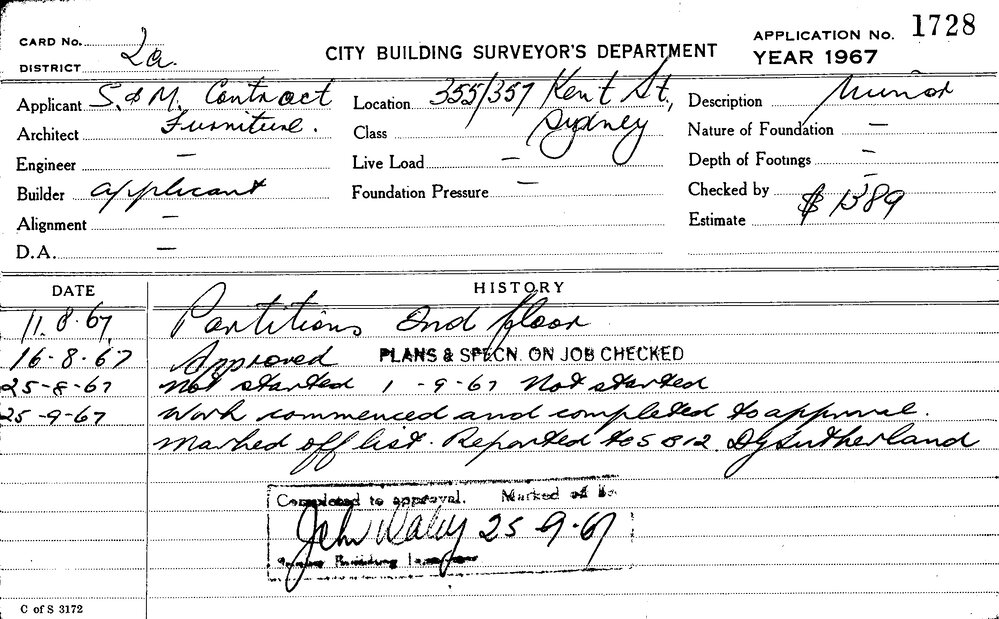 CARD No. 2a. CITY BUILDING SURVEYOR'S DEPARTMENT APPLICATION No. 1728
DISTRICT YEAR 1967
Applicant S. & M. Contract Location 355/357 Kent St., Description Minor
Architect Furniture. Class Sydney Nature of Foundation —
Engineer — Live Load — Depth of Footings —
Builder applicant Foundation Pressure — Checked by —
Alignment — Estimate $1389
D.A. —
DATE HISTORY
11.8.67 Partitions 2nd floor
16-8-67 Approved PLANS & SPECN. ON JOB CHECKED
25-8-67 Not started 1-9-67 Not started
25-9-67 Work commenced and completed to approval.
Marked off list. Reported to S B 12. Sutherland
Completed to approval. Marked off
John Daley 25-9-67
Building
C of S 3172